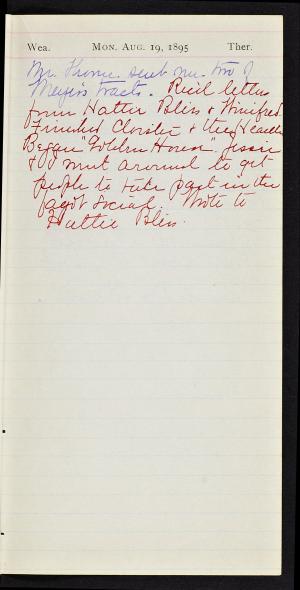 Wea. MON. AUG. 19, 1895 Ther.
Mr. sent me two of
Meyer's tracts. Rec'd letters
from Hattie Bliss & Winifred
Finished Cloister & the Hearth
Began "Golden House". Jessie
& I went around to get
people to take part in the
fagot social. Wrote to
Hattie Bliss.